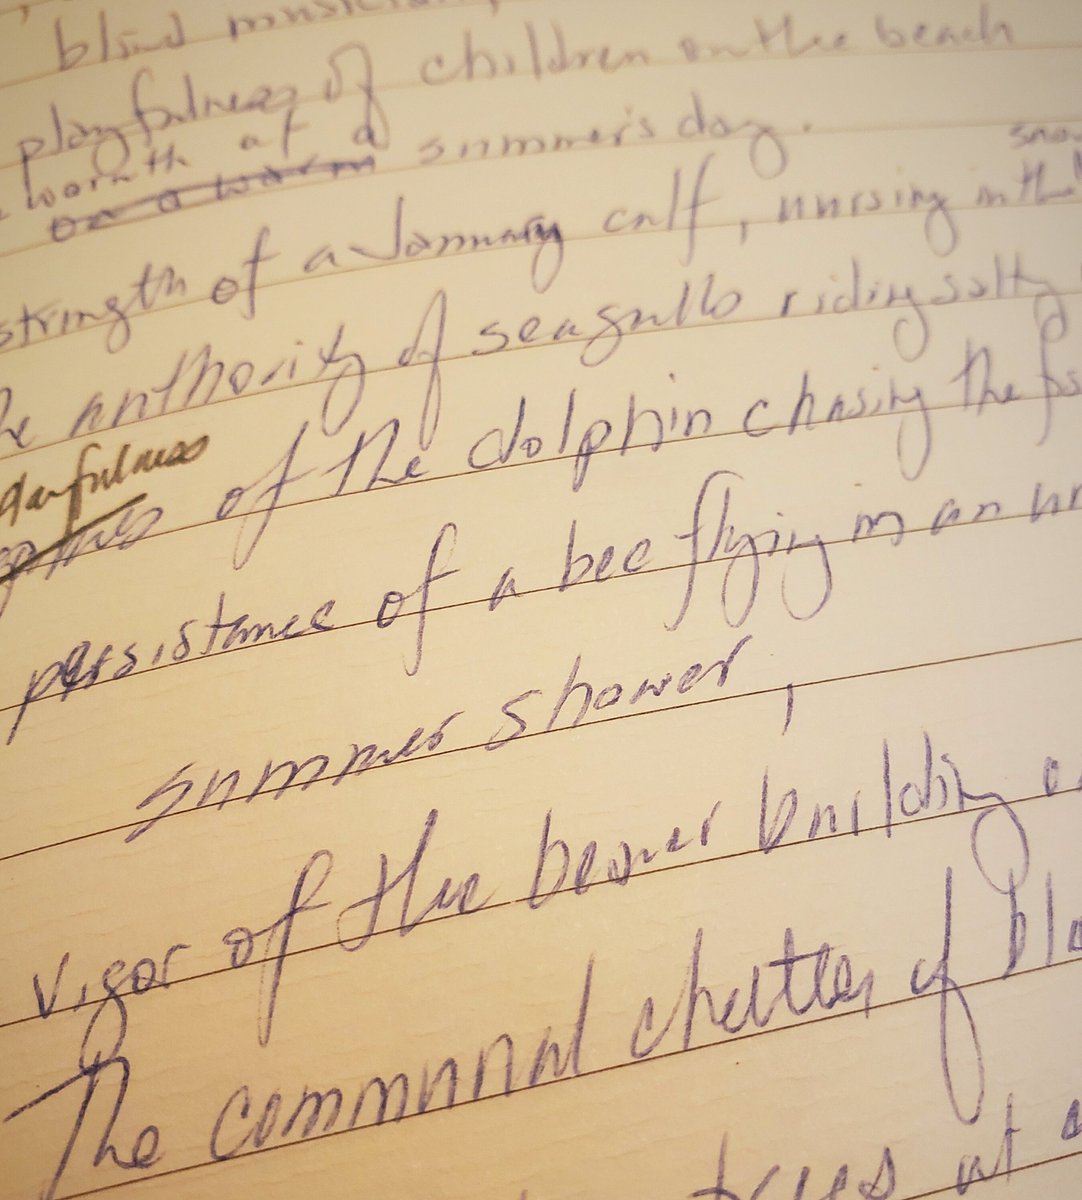 blind
playfulness of children on the beach
warmth of a
on a warm summer's day.
strength of a January calf, nursing in the
authority of seagulls riding salty
of the dolphin chasing the
persistance of a bee flying in an
summer shower,
vigor of the beaver building
The communal chatter of
trees at